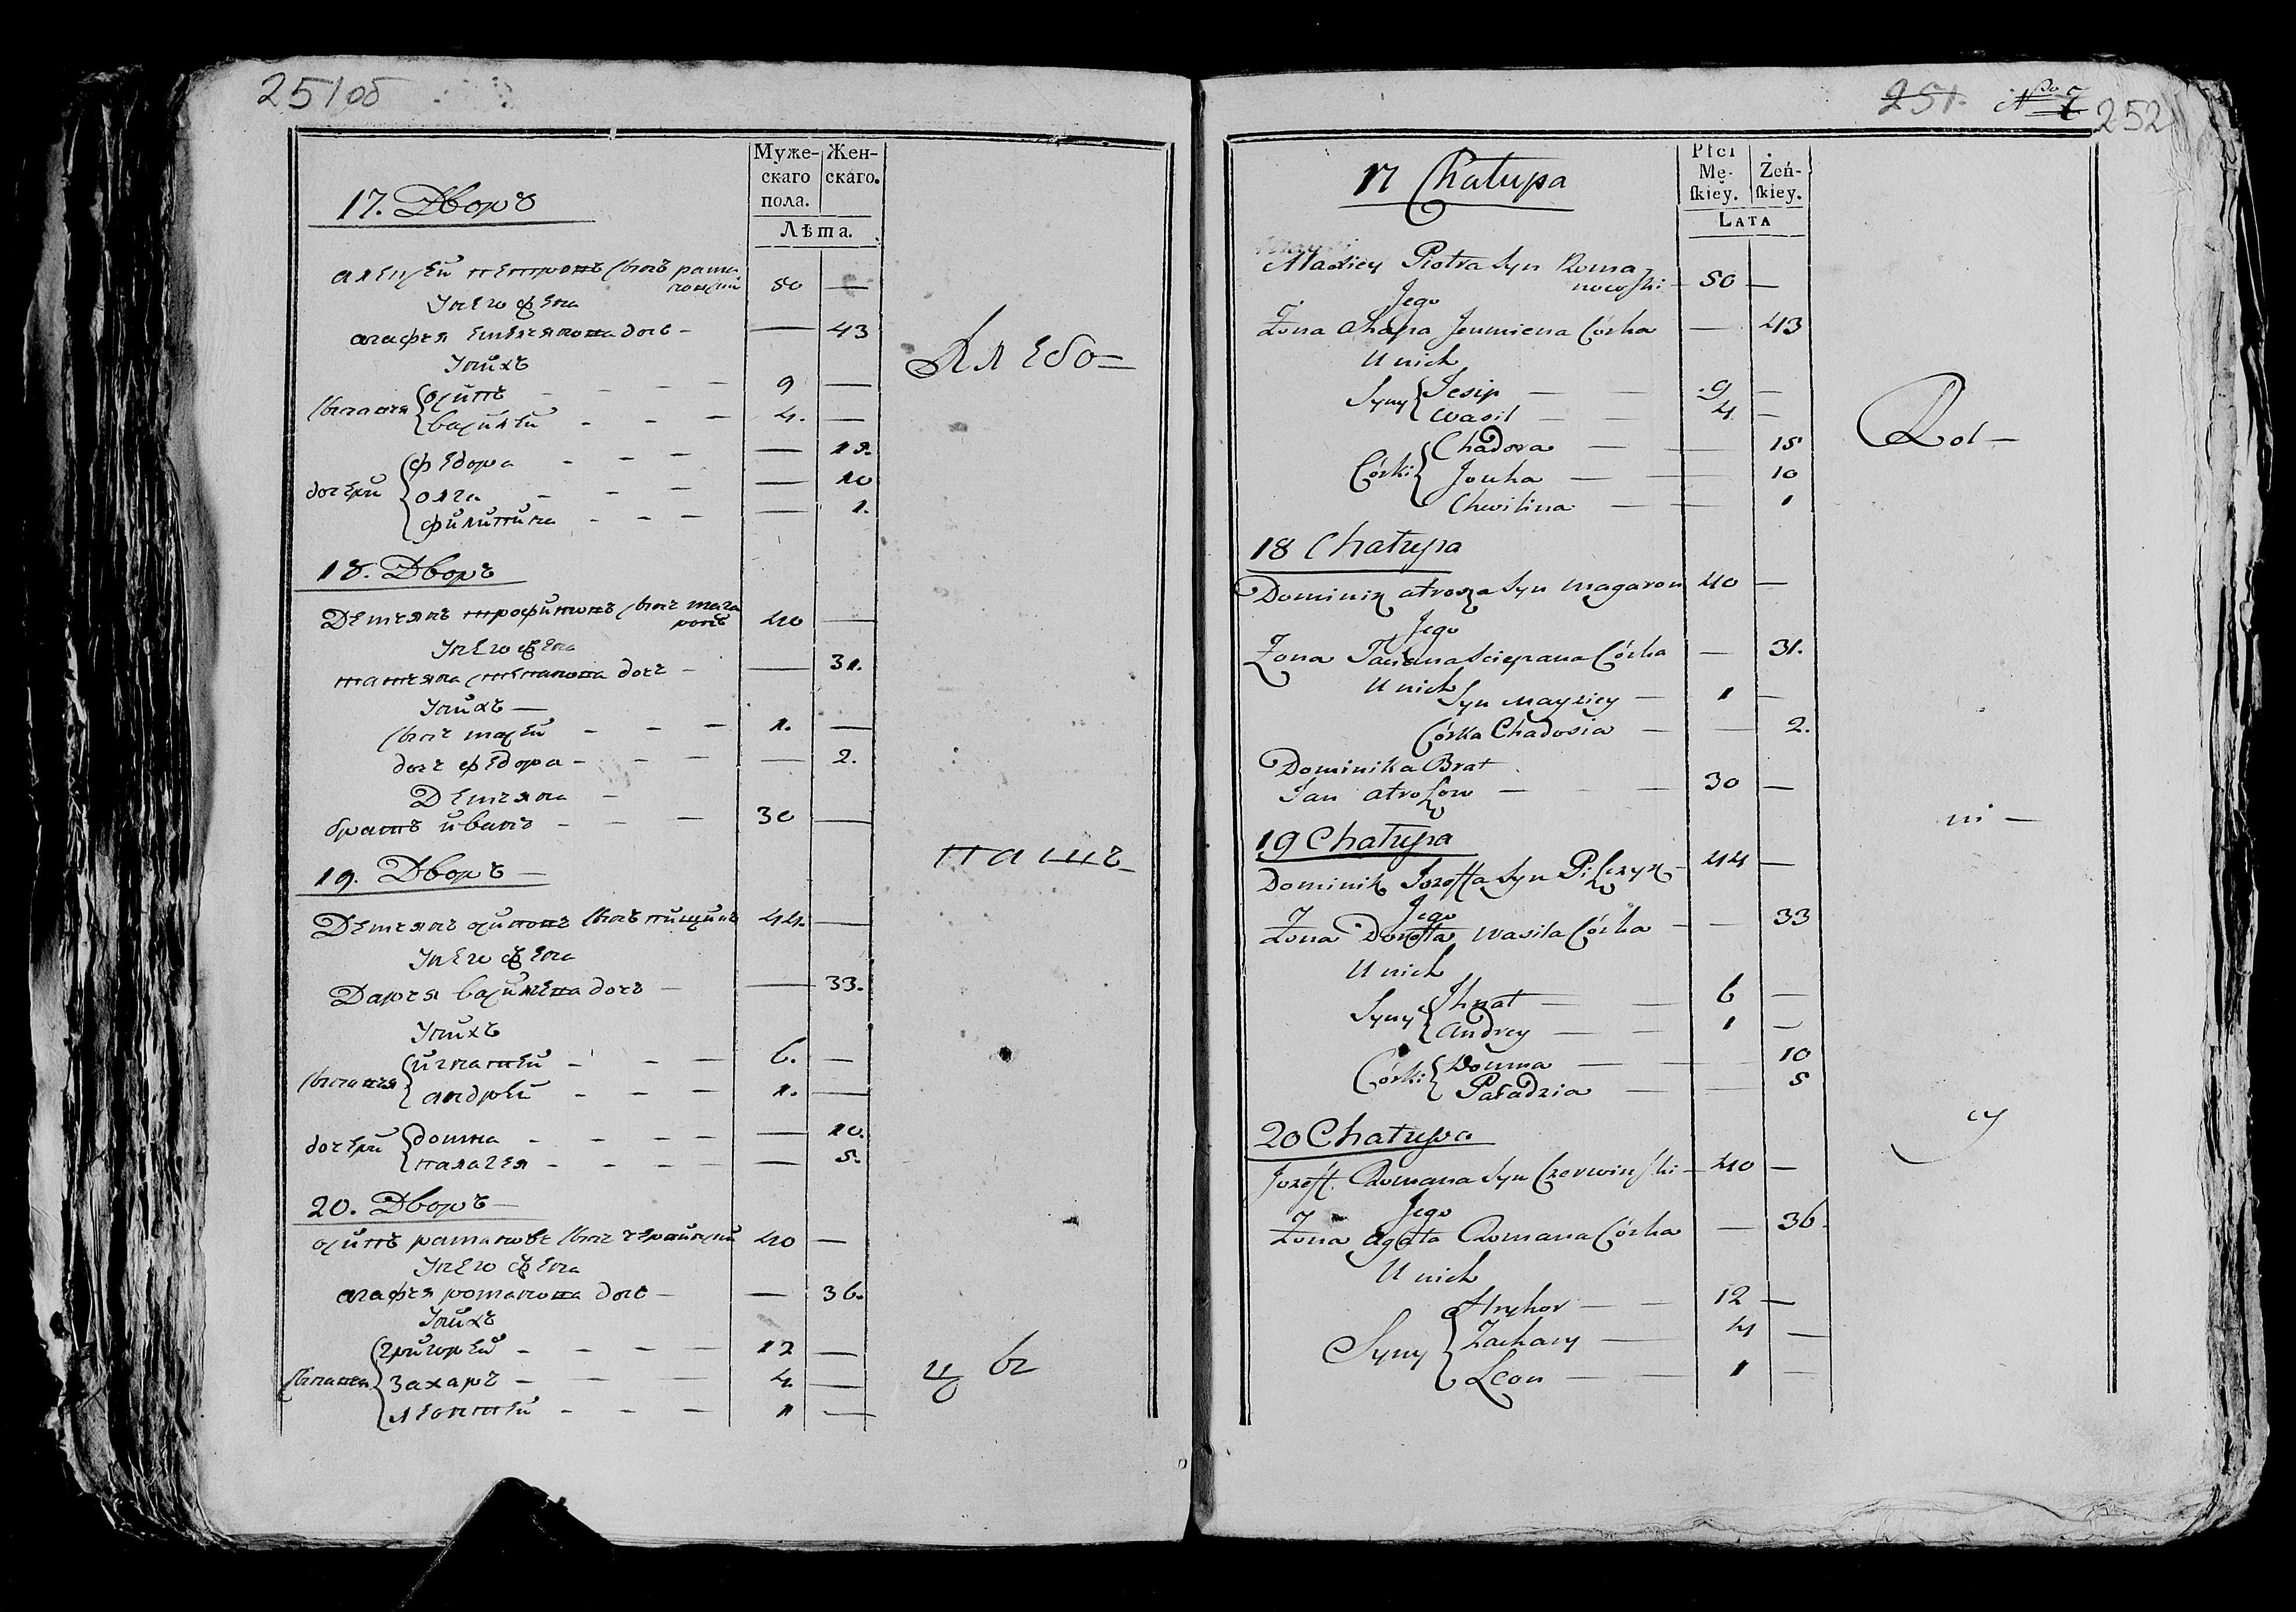 251об
Муже-
скаго
пола.
Жен-
скаго.
Лѣта.
17. Дворъ
Алексей петровъ сынъ рома
новский 50 —
Унего жена
агафья емельянова дочь - — 43
Унихъ
сыновья осипъ - - - 9 —
василей - - - 4. —
дочери федора - - - —
олга - - - — 10
филипина - - - — 1.
Хлебо—
18. Дворъ
Демьянъ трофимовъ сынъ мага
ровъ 40 —
Унего жена
татьяна степанова дочь - — 31.
Унихъ —
сынъ мосей - - - 1. —
дочь федора - - - — 2.
Демьяна —
братъ иванъ - - - 30 —
19. Дворъ —
пашъ—
Демьянъ осиповъ сынъ пищикъ 44. —
Унего жена
Дарья васильева дочь — — 33.
Унихъ
сыновья игнатей - - - 6. —
андрей - - - 1. —
дочери домна - - - - — 10.
палагея - - - - — 5.
20. Дворъ —
осипъ романовъ сынъ 40 —
Унего жена
агафья романова дочь — — 36.
Унихъ
сыновья григорей - - - - 12 —
захаръ - - - 4. —
леонтей - - - 1 —
цы
251. № 7 252
Płci
Mę-
skiey.
Żeń-
skiey.
LATA
17 Chałupa
Alaxiey Piotra Syn Roma
nowski - 50 —
Jego
Żona Ahapa Jeumiena Córka — 43
U nich
Syny Jesip — — 9 —
Wasil — — 4 —
Córki Chadora — — 15
Jouha — — 10
Chwilina — — 1
Rol—
18 Chałupa
Dominik Atroxa Syn Magarow 40 —
Jego
Żona Taciana Sciepana Córka — 31.
U nich
Syn Mayziey — 1 —
Córka Chadosia — — 2.
Dominika Brat
Jan Atrosow — — 30 —
ni —
19 Chałupa
Dominik Jozeffa Syn - 44 —
Jego
Żona Dorotta Wasila Córka - — 33
U nich
Syny Jhnat — — 6 —
Andrey — — 1 —
Córki Domna — — 10
Paładzia — — 5
20 Chałupa
cy
Jozeff. Romana Syn Czerwinski — 40 —
Jego
Żona Agata Romana Córka — 36.
U nich
Syny Hryhor — — 12 —
Zachary — 4 —
Leon — — 1 —